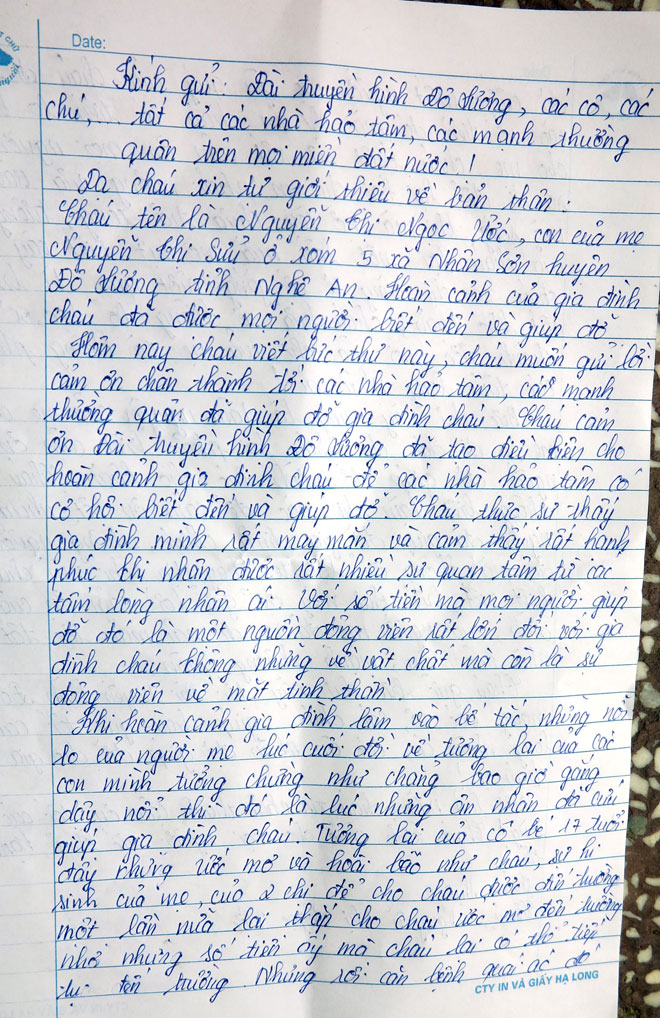 Date:
Kính gửi: Đài truyền hình Đô Lương, các cô, các
chú,... tất cả các nhà hảo tâm, các mạnh thường
quân trên mọi miền đất nước!
Dạ cháu xin tự giới thiệu về bản thân:
Cháu tên là Nguyễn Thị Ngọc Ước, con của mẹ
Nguyễn Thị Sửu ở xóm 5 xã Nhân Sơn huyện
Đô Lương tỉnh Nghệ An. Hoàn cảnh của gia đình
cháu đã được mọi người biết đến và giúp đỡ
Hôm nay cháu viết bức thư này, cháu muốn gửi lời
cảm ơn chân thành tới các nhà hảo tâm, các mạnh
thường quân đã giúp đỡ gia đình cháu. Cháu cảm
ơn Đài truyền hình Đô Lương đã tạo điều kiện cho
hoàn cảnh gia đình cháu để các nhà hảo tâm có
cơ hội biết đến và giúp đỡ. Cháu thực sự thấy
gia đình mình rất may mắn và cảm thấy rất hạnh
phúc khi nhận được rất nhiều sự quan tâm từ các
tấm lòng nhân ái. Với số tiền mà mọi người giúp
đỡ đó là một nguồn động viên rất lớn đối với gia
đình cháu không những về vật chất mà còn là sự
động viên về mặt tinh thần.
Khi hoàn cảnh gia đình lâm vào bế tắc, những nỗi
lo của người mẹ lúc cuối đời về tương lai của các
con mình tưởng chừng như chẳng bao giờ gắng
dậy nổi thì đó là lúc những ân nhân đã cứu
giúp gia đình cháu. Tương lai của cô bé 17 tuổi
đầy những ước mơ và hoài bão như cháu, sự hi
sinh của mẹ, của 2 chị để cho cháu được đến trường
một lần nữa lại thắp cho cháu ước mơ đến trường
nhờ những số tiền ấy mà cháu lại có thể tiếp
tục đến trường. Nhưng rồi căn bệnh quái ác đó
CTY IN VÀ GIẤY HẠ LONG